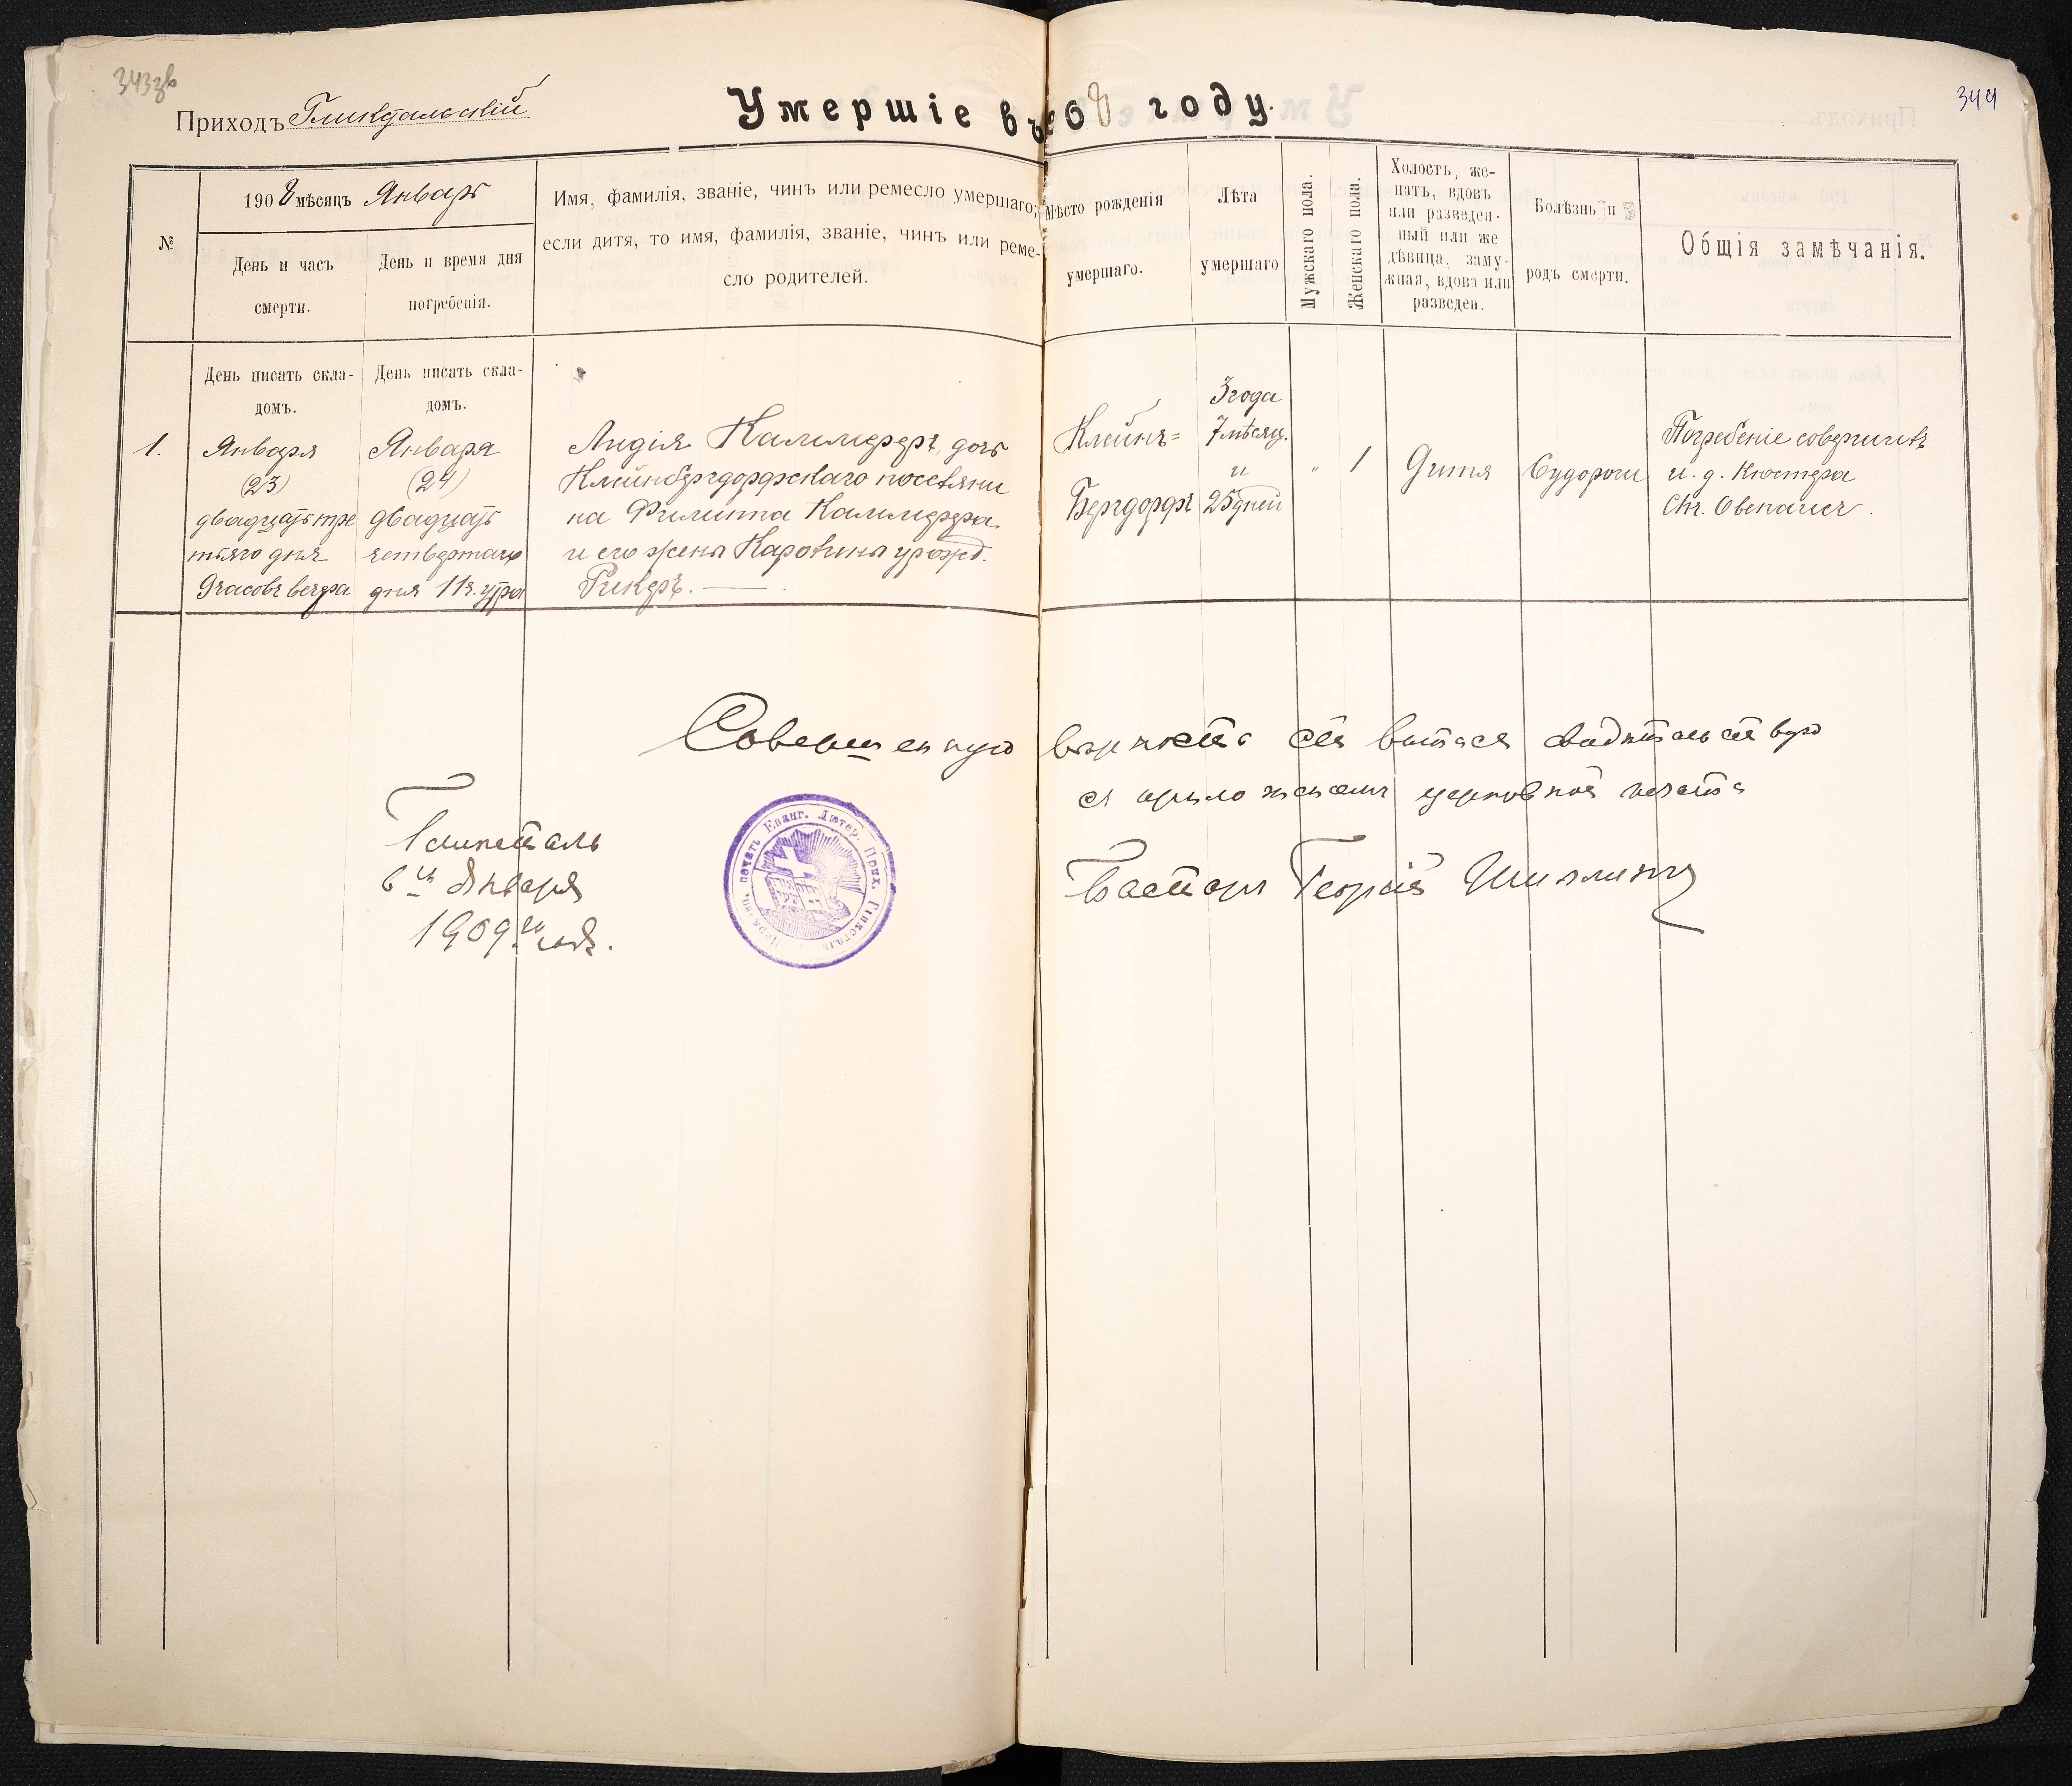 343об
344
Приходъ Глюкстальскій
Умершіе въ 908 году.
№
1908 мѣсяцъ Январь
День и часъ
смерти.
День и время дня
погребенія.
Имя, фамилія, званіе, чинъ или ремесло умершаго;
если дитя, то имя, фамилія, званіе, чинъ или реме-
сло родителей.
Мѣсто рожденія
умершаго.
Лѣта
умершаго
Мужскаго пола.
Женскаго пола.
Холостъ, же-
натъ, вдовъ
или разведен-
ный или же
дѣвица, заму-
жная, вдова или
разведен.
Болѣзнь и
родъ смерти.
Общія замѣчанія.
День писать скла-
домъ.
День писать скла-
домъ.
1.
Января
(23)
двадцать тре
тьяго дня
9 часовъ вечера
Января
(24)
двадцать
четвертаго
дня 11 ч. утра
Лидія Каллмереръ, дочь
Клейнбергдорфскаго поселяни
на Филиппа Каллмерера
и его жены Каролины урожд.
Рикеръ.
Клейнъ=
Бергдорфъ
3 года
7 мѣсяц.
и
25 дней
"
1
Дитя
Судороги
Погребеніе совершилъ
и. д. Кюстера
Совершенную вѣрность сей выписи свидѣтельствую
съ приложеніемъ церковной печати
Глюксталь
6го Января
1909 го года.
Пасторъ Георгій Шиллингъ
печать Еванг. Лютер. Прих. Глюксталь